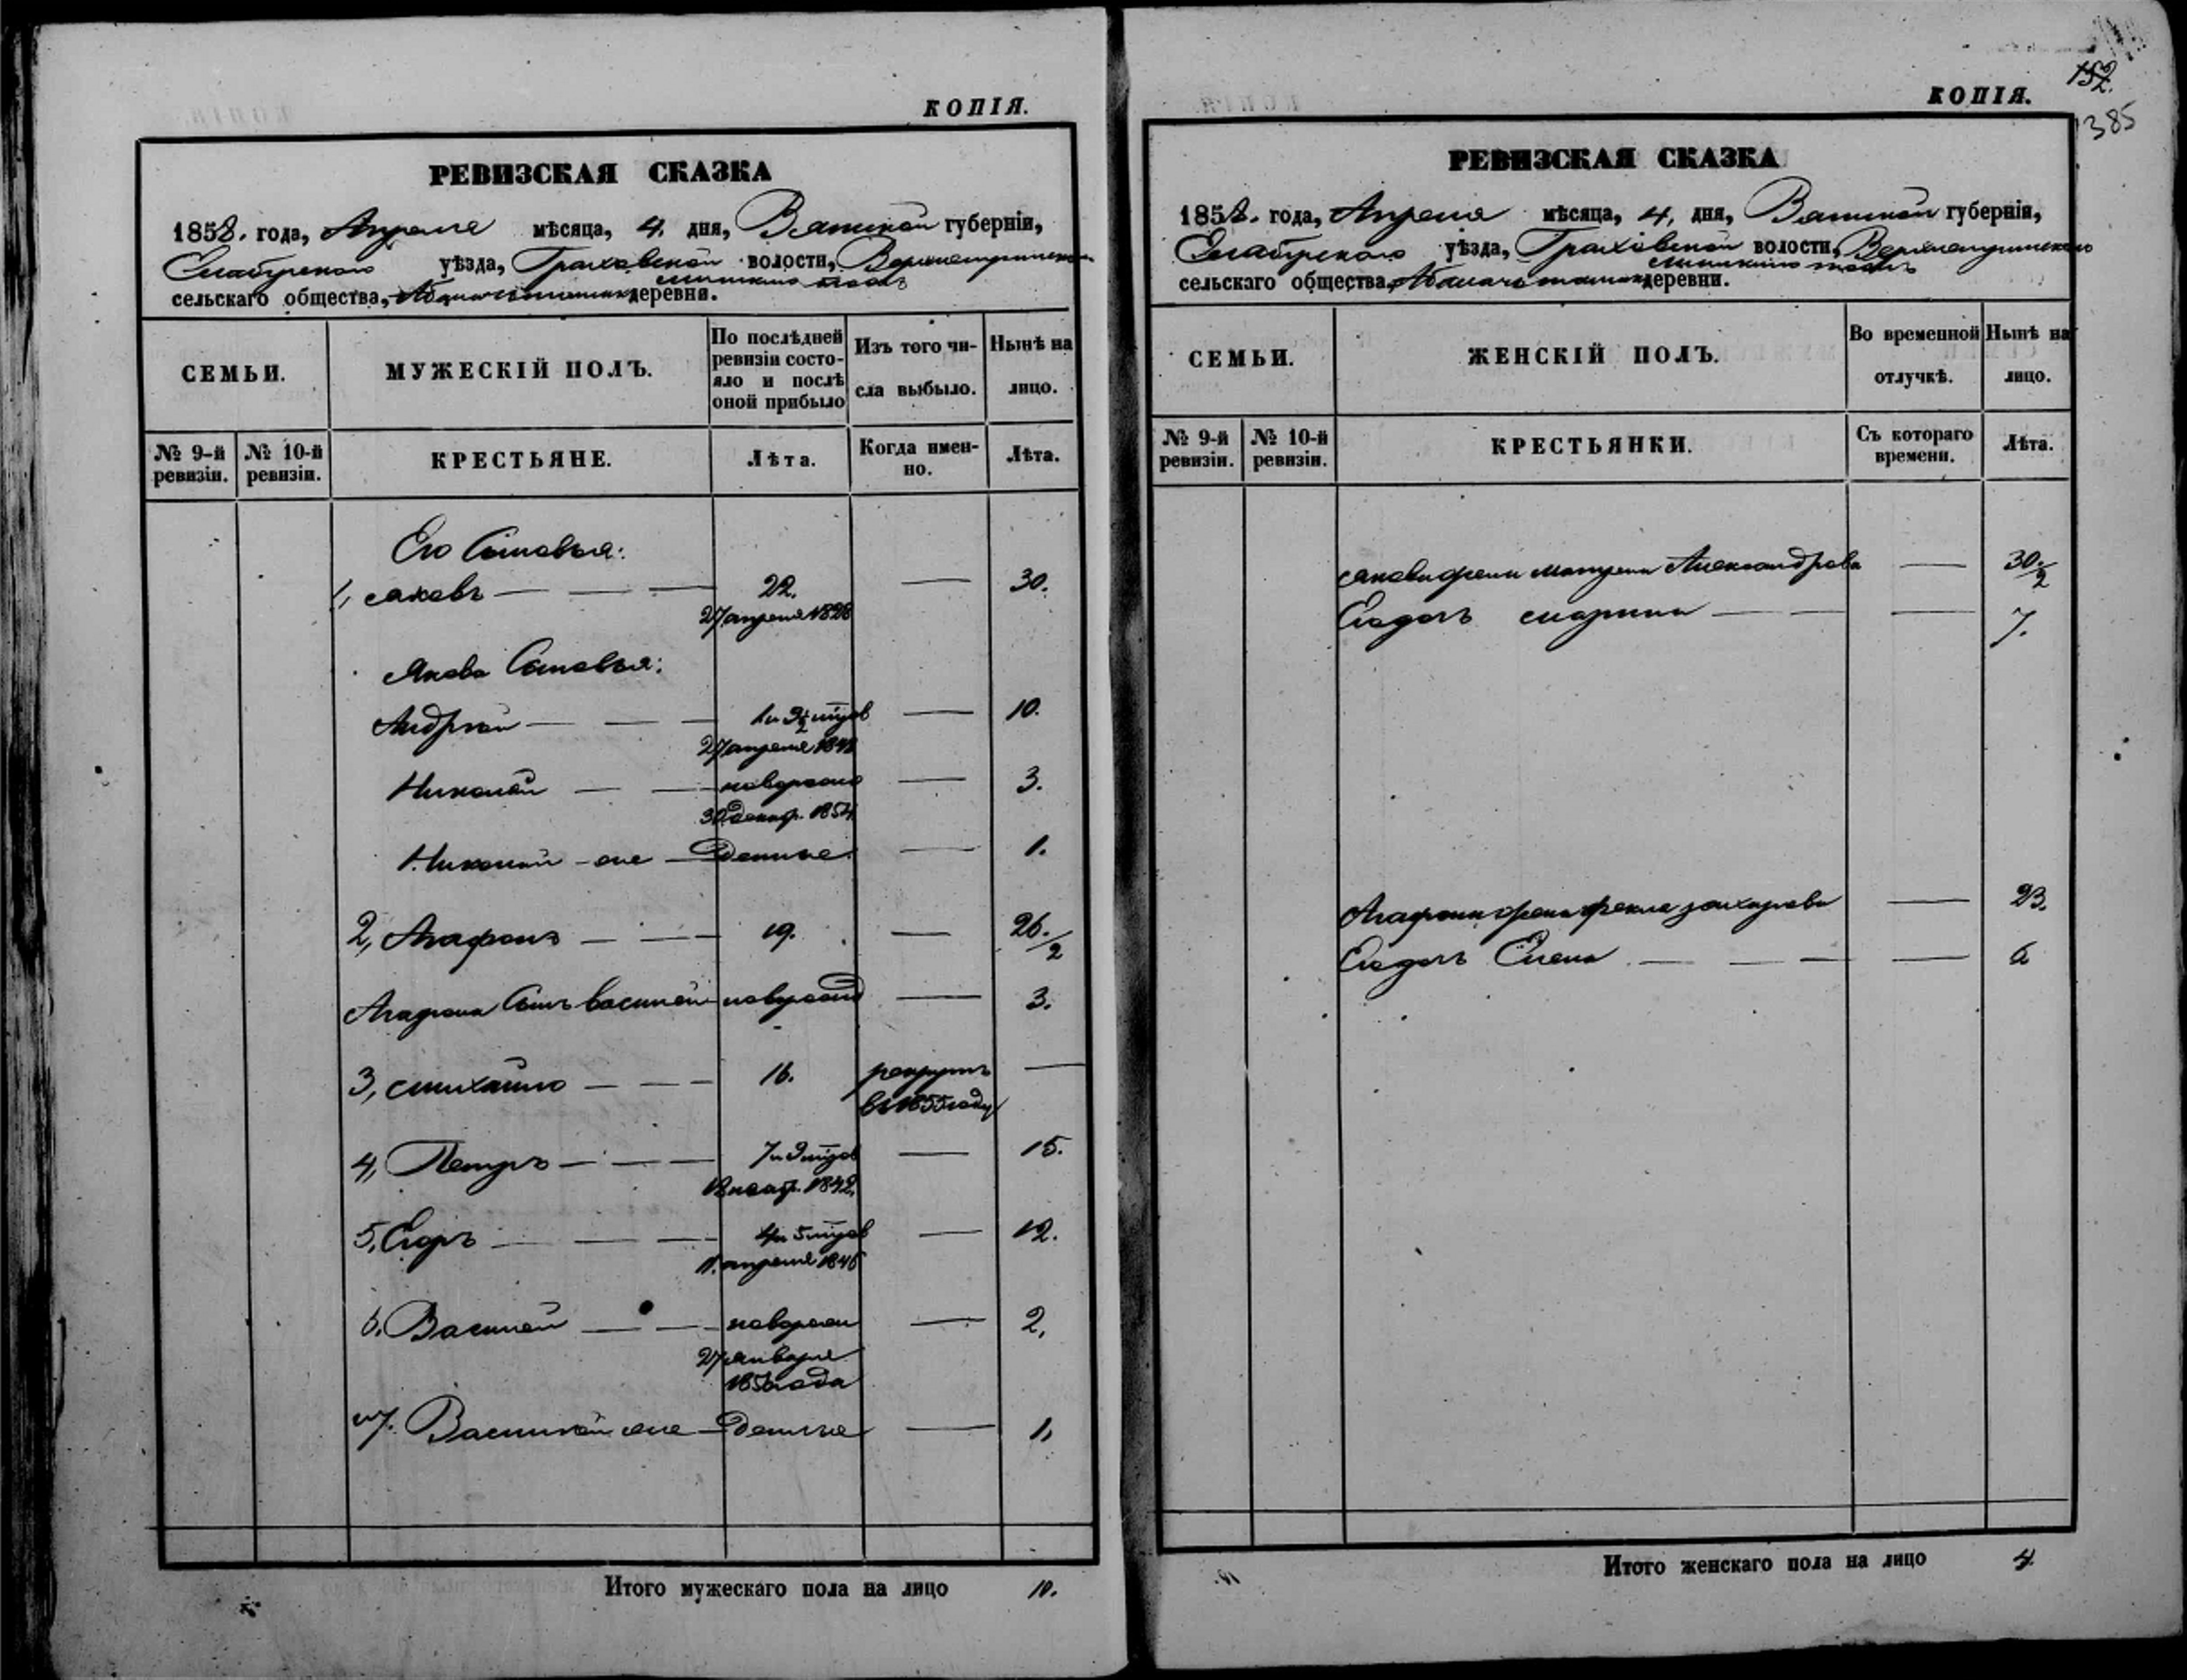 КОПІЯ.
РЕВИЗСКАЯ СКАЗКА
1858. года, Апреля мѣсяца, 4. дня, Вятской губерніи,
Елабугскаго уѣзда, Граховской волости,
сельскаго общества, деревни.
СЕМЬИ.
МУЖЕСКІЙ ПОЛЪ.
По послѣдней ревизіи состо-
яло и послѣ
оной прибыло
Изъ того чи-
сла выбыло.
Нынѣ на
лицо.
№ 9-й ревизіи.
№ 10-й ревизіи.
КРЕСТЬЯНЕ.
Лѣта.
Когда имен-
но.
Лѣта.
Его Сыновья:
1, Яковъ — — — 22. — 30.
27 апреля 1828
Якова Сыновья:
Андрей — — — 1 и 3½ мцов — 10.
27 апреля 1848
Николай — — новорожд — 3.
30 декабр. 1854
Николай — — 1.
2, Агафонъ — — — 19. — 26./2
Агафона Сынъ Василей новорожд — 3.
3, Михайло — — — 16. рекрутъ —
въ 1855 году
4, Петръ — — — 7 и мцов — 15.
1842
5, Егоръ — — — 4 и 5 мцов — 12.
апреля 1846
6, Василей — — новорожд — 2,
27 января
1856 года
7. Василей — — 1,
Итого мужескаго пола на лицо 10.
152.
385
КОПІЯ.
РЕВИЗСКАЯ СКАЗКА
1858. года, Апреля мѣсяца, 4, дня, Вятской губерніи,
Елабугскаго уѣзда, Граховской волости,
сельскаго общества, деревни.
СЕМЬИ.
ЖЕНСКІЙ ПОЛЪ.
Во временной
отлучкѣ.
Нынѣ на
лицо.
№ 9-й ревизіи.
№ 10-й ревизіи.
КРЕСТЬЯНКИ.
Съ котораго
времени.
Лѣта.
Якова жена Матрена Александрова — 30./2
Ея дочь Марина — — — 7.
Агафона жена Фекла Захарова — 23.
Ея дочь Елена — — — —
Итого женскаго пола на лицо 4.